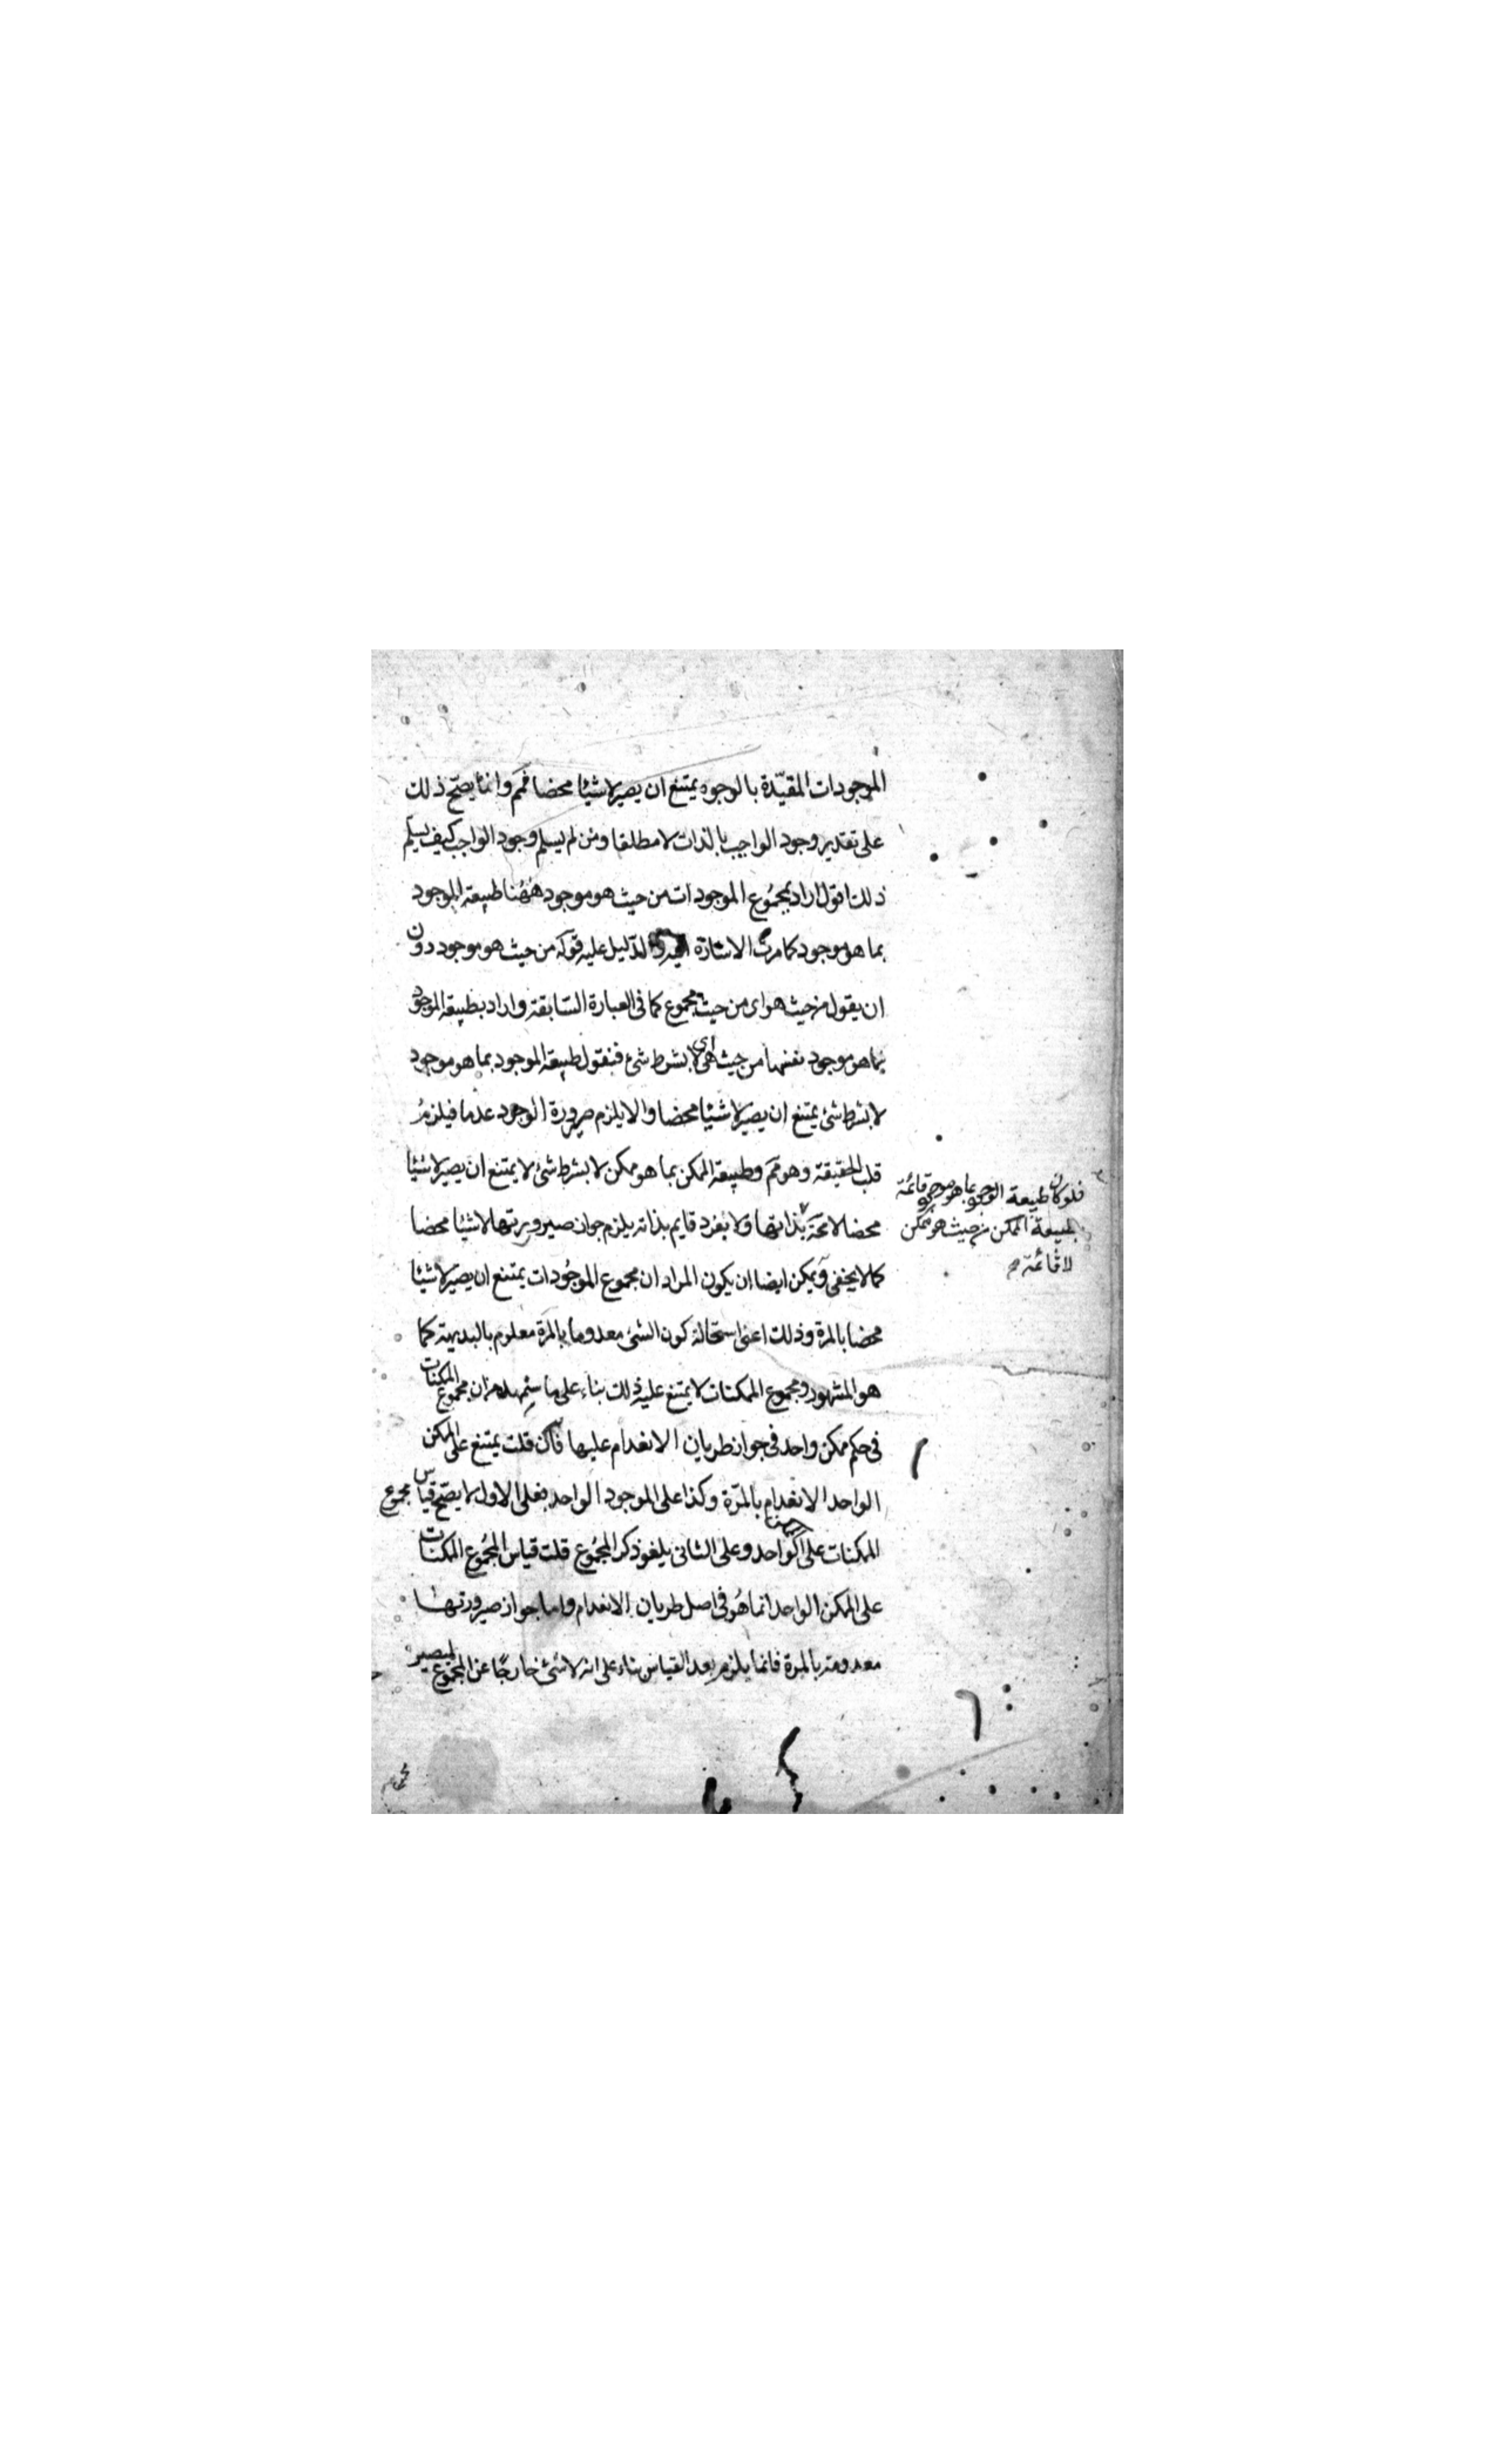 الموجودات المقيّدة بالوجود يمتنع ان يصير لاشيئا محضا فمم وانما يصحّ ذلك
على تقدير وجود الواجب بالذات لا مطلقا ومن لم يسلم وجود الواجب كيف يسلّم
ذلك اقول اراد بمجموع الموجودات من حيث هو موجود ههُنا طبيعة الموجود
بما هو موجود كما مرت الاشارة اليه والدّليل عليه قوله من حيث هو موجود دون
ان يقول من حيث هو اى من حيث مجموع كما فى العبارة السّابقة واراد بطبيعة الموجود
بما هو موجود نفسها من حيث هى اى لا بشرط شئ فنقول طبيعة الموجود بما هو موجود
لا بشرط شئ يمتنع ان يصير لاشيئا محضا والا يلزم صيرورة الوجود عدما فيلزمُ
قلب الحقيقة وهو مم وطبيعة الممكن بما هو ممكن لا بشرط شئ لا يمتنع ان يصير لاشيئا
محضا لا بذاتها ولا بفرد قايم بذاته يلزم جواز صيرورتها لاشيئا محضا
فلو كان طبيعة الموجود بما هو موجود قائمة
بطبيعة الممكن من حيث هو ممكن
لا قائمة
كما لا يخفى ويمكن ايضا ان يكون المراد ان مجموع الموجُودات يمتنع ان يصير لاشيئا
محضا بالمرة وذلك اعنى استحالة كون الشئ معدوما بالمرّة معلوم بالبديهة كما
هو المشهور ومجموع الممكنات لا يمتنع عليه ذلك بناء على ما سيمهده من ان مجموع الممكنات
فى حكم ممكن واحد فى جواز طريان الانعدام عليها فان قلت يمتنع على الممكن
الواحد الانعدام بالمرّة وكذا على الموجود الواحد فعلى الاول لا يصحّ قياس مجموع
الممكنات على الواحد وعلى الثانى يلغو ذكر المجمُوع قلت قياس المجمُوع الممكنات
على الممكن الواحد انما هُو فى اصل طريان الانعدام واما جواز صيرورتها
معدومة بالمرة فانما يلزم بعد القياس بناء على انه لا شئ خارجًا عن المجموع ليصير